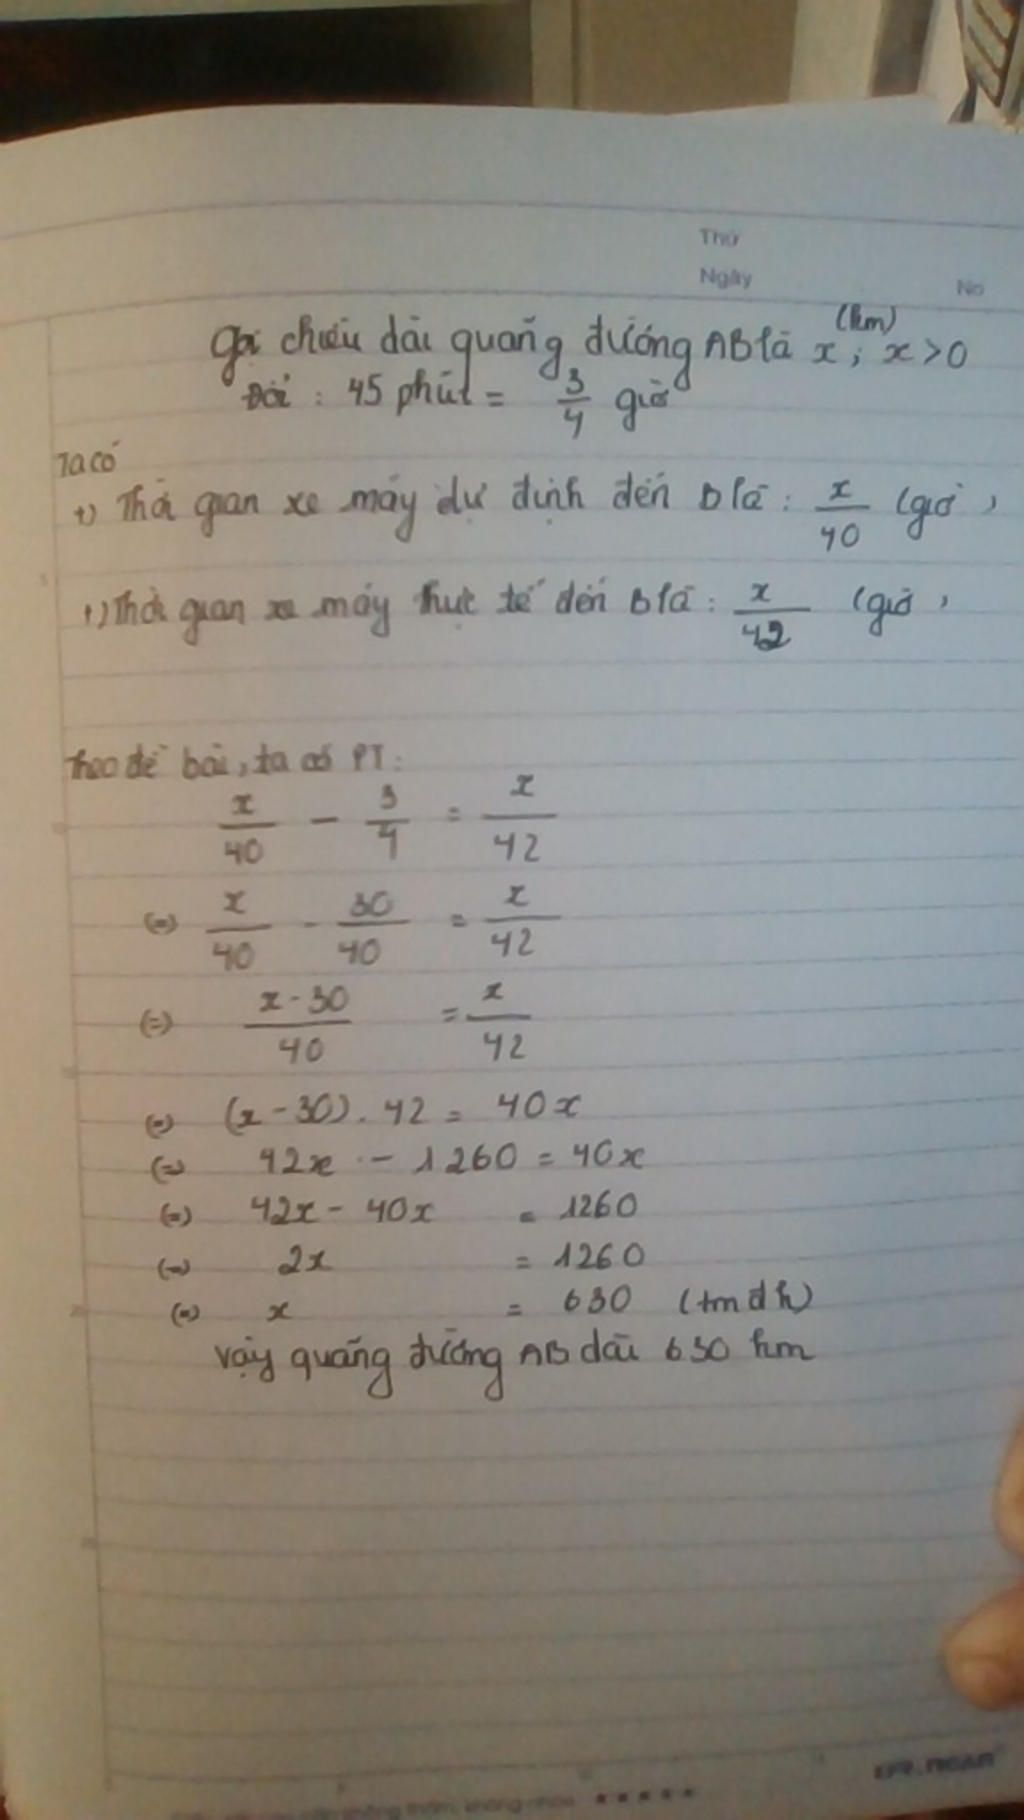 Thứ
Ngày No
(km)
Gọi chiều dài quãng đường AB là x ; x > 0
Đổi : 45 phút = 3/4 giờ
Ta có
+) Thời gian xe máy dự định đến B là : x/40 (giờ)
+) Thời gian xe máy thực tế đến B là : x/42 (giờ)
Theo đề bài, ta có PT :
x/40 - 3/4 = x/42
(=) x/40 - 30/40 = x/42
(=) x - 30/40 = x/42
(=) (x - 30) . 42 = 40x
(=) 42x - 1260 = 40x
(=) 42x - 40x = 1260
(=) 2x = 1260
(=) x = 630 (tmđk)
Vậy quãng đường AB dài 630 km